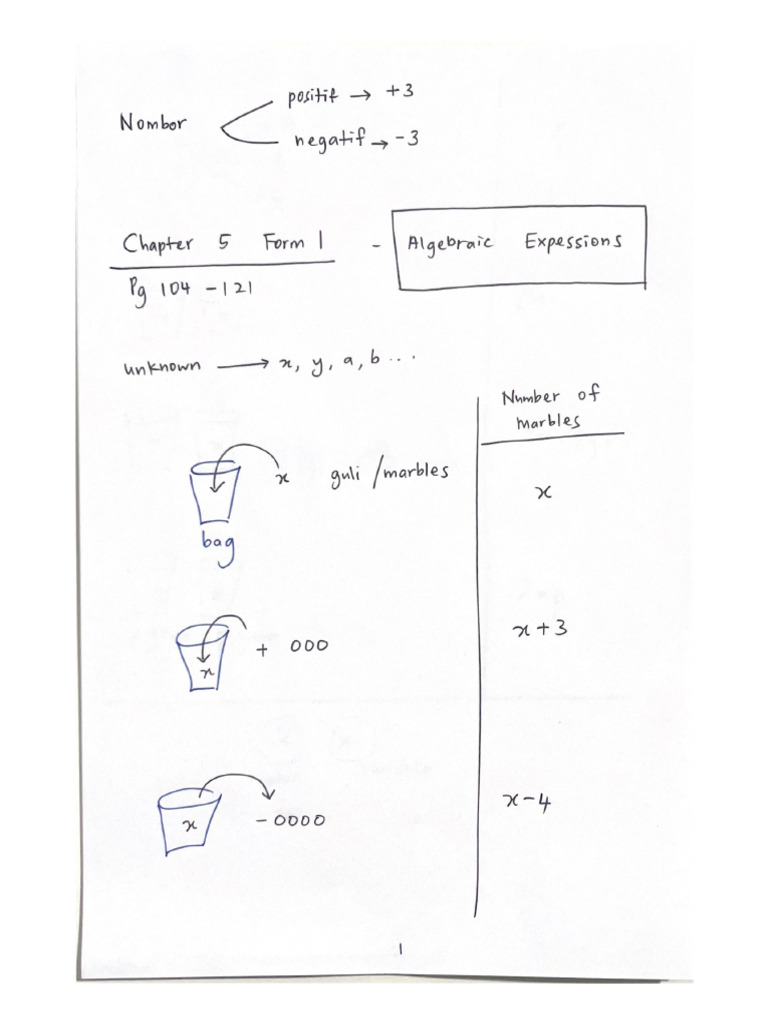 Nombor
positif → +3
negatif → -3
Chapter 5 Form 1 - Algebraic Expessions
Pg 104 - 121
unknown → x, y, a, b ...
Number of
marbles
x guli / marbles
x
bag
x + 000
x + 3
x - 0000
x - 4
1